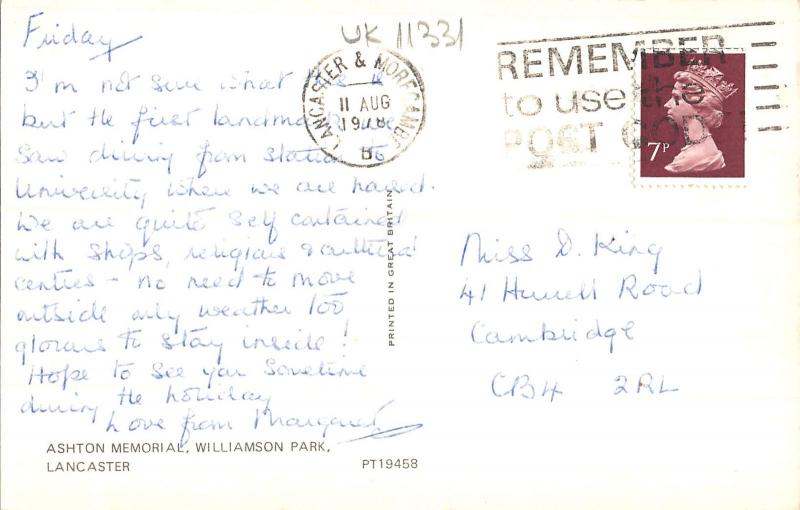 UK 11331
Friday
I'm not sure what this is
but the first landmark we
saw driving from station to
University where we are housed.
We are quite self contained
with shops, religious & cultural
centres - no need to move
outside only weather too
glorious to stay inside!
Hope to see you sometime
during the holiday
Love from Margaret
ASHTON MEMORIAL, WILLIAMSON PARK,
LANCASTER
PT19458
PRINTED IN GREAT BRITAIN
LANCASTER & MORECAMBE
11 AUG
1978
B
REMEMBER
to use the
POST COD
7P
Miss D. King
41 Road
Cambridge
CB4 2RL